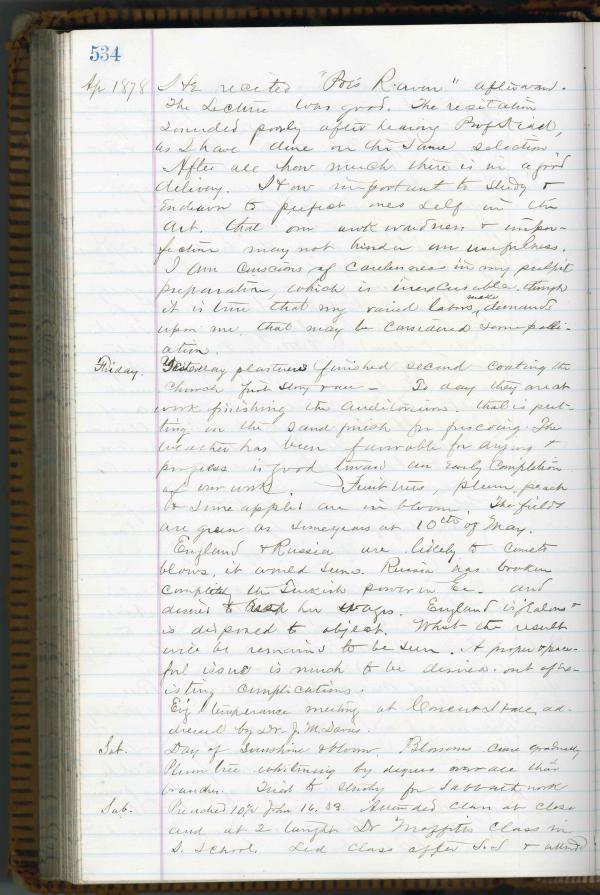 534
Ap 1878 & recited "Poe's Raven" afterward.
The Lecture was good. The recitation
sounded poorly after hearing Prof Read,
as I have done on the same selection
After all how much there is in a good
delivery. How important to study &
endeavor to perfect ones self in the
Art, that our awkwardness & imper-
fection may not hinder our usefulness.
I am conscious of carelessness in my pulpit
preparation, which is inexcusable, though
it is true that my varied labors make demands
upon me, that may be considered some palli-
ation.
Friday. Yesterday plasterers finished second coating the
Church first story & rear - To day they are at
work finishing the Auditorium. that is put-
ting on the sand finish for frescoing. The
weather has been favorable for drying &
progress is good toward an early completion
of our work. Fruit trees, plum, peach
& some apples are in bloom. The fields
are green as some years at 10th of May.
England & Russia are likely to come to
blows, it would seem. Russia has broken
completely the Turkish power in and
desires to her wages. England is jealous &
is disposed to object. What the result
will be remains to be seen. A proper & peace-
ful issue is much to be desired out of ex-
isting complications.
Evg temperance meeting at Concert Hall, ad-
dressed by Dr. J. M. Davis.
Sat. Day of Sunshine & bloom. Blossoms come gradually
Plum tree whitening by degrees over all their
branches. Tried to study for Sabbath work
Sab. Preached 10½ John 16. 33. Attended class at close
and at 2 taught Dr Moffitts Class in
S. School. Led Class after S.S & attend